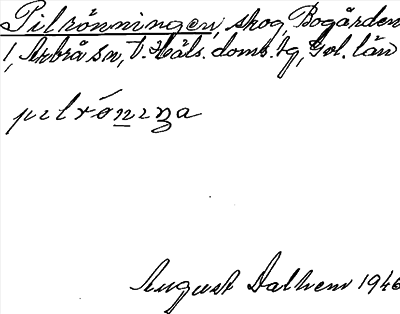 Pilrönningen, skog, Bogården
1, Arbrå sn, V. Häls. doms. tg, Gvl. län
pilrǿnıŋa
August Dalhem 1946